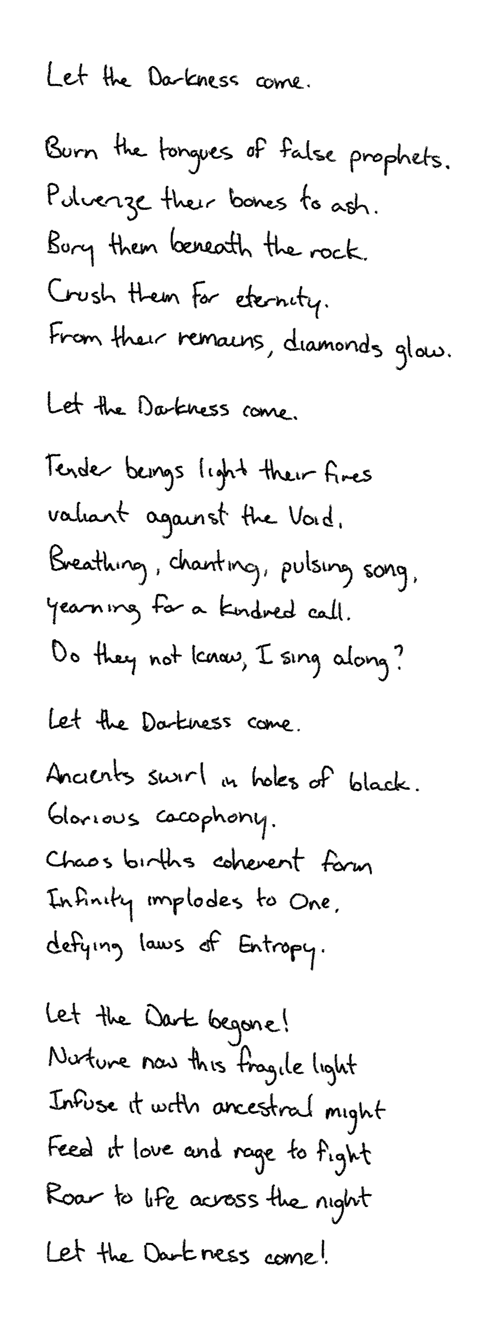 Let the Darkness come.
Burn the tongues of false prophets.
Pulverize their bones to ash.
Bury them beneath the rock.
Crush them for eternity.
From their remains, diamonds glow.
Let the Darkness come.
Tender beings light their fires
valiant against the Void.
Breathing, chanting, pulsing song,
yearning for a kindred call.
Do they not know, I sing along?
Let the Darkness come.
Ancients swirl in holes of black.
Glorious cacophony.
Chaos births coherent form
Infinity implodes to One,
defying laws of Entropy.
Let the Dark begone!
Nurture now this fragile light
Infuse it with ancestral might
Feed it love and rage to fight
Roar to life across the night
Let the Darkness come!